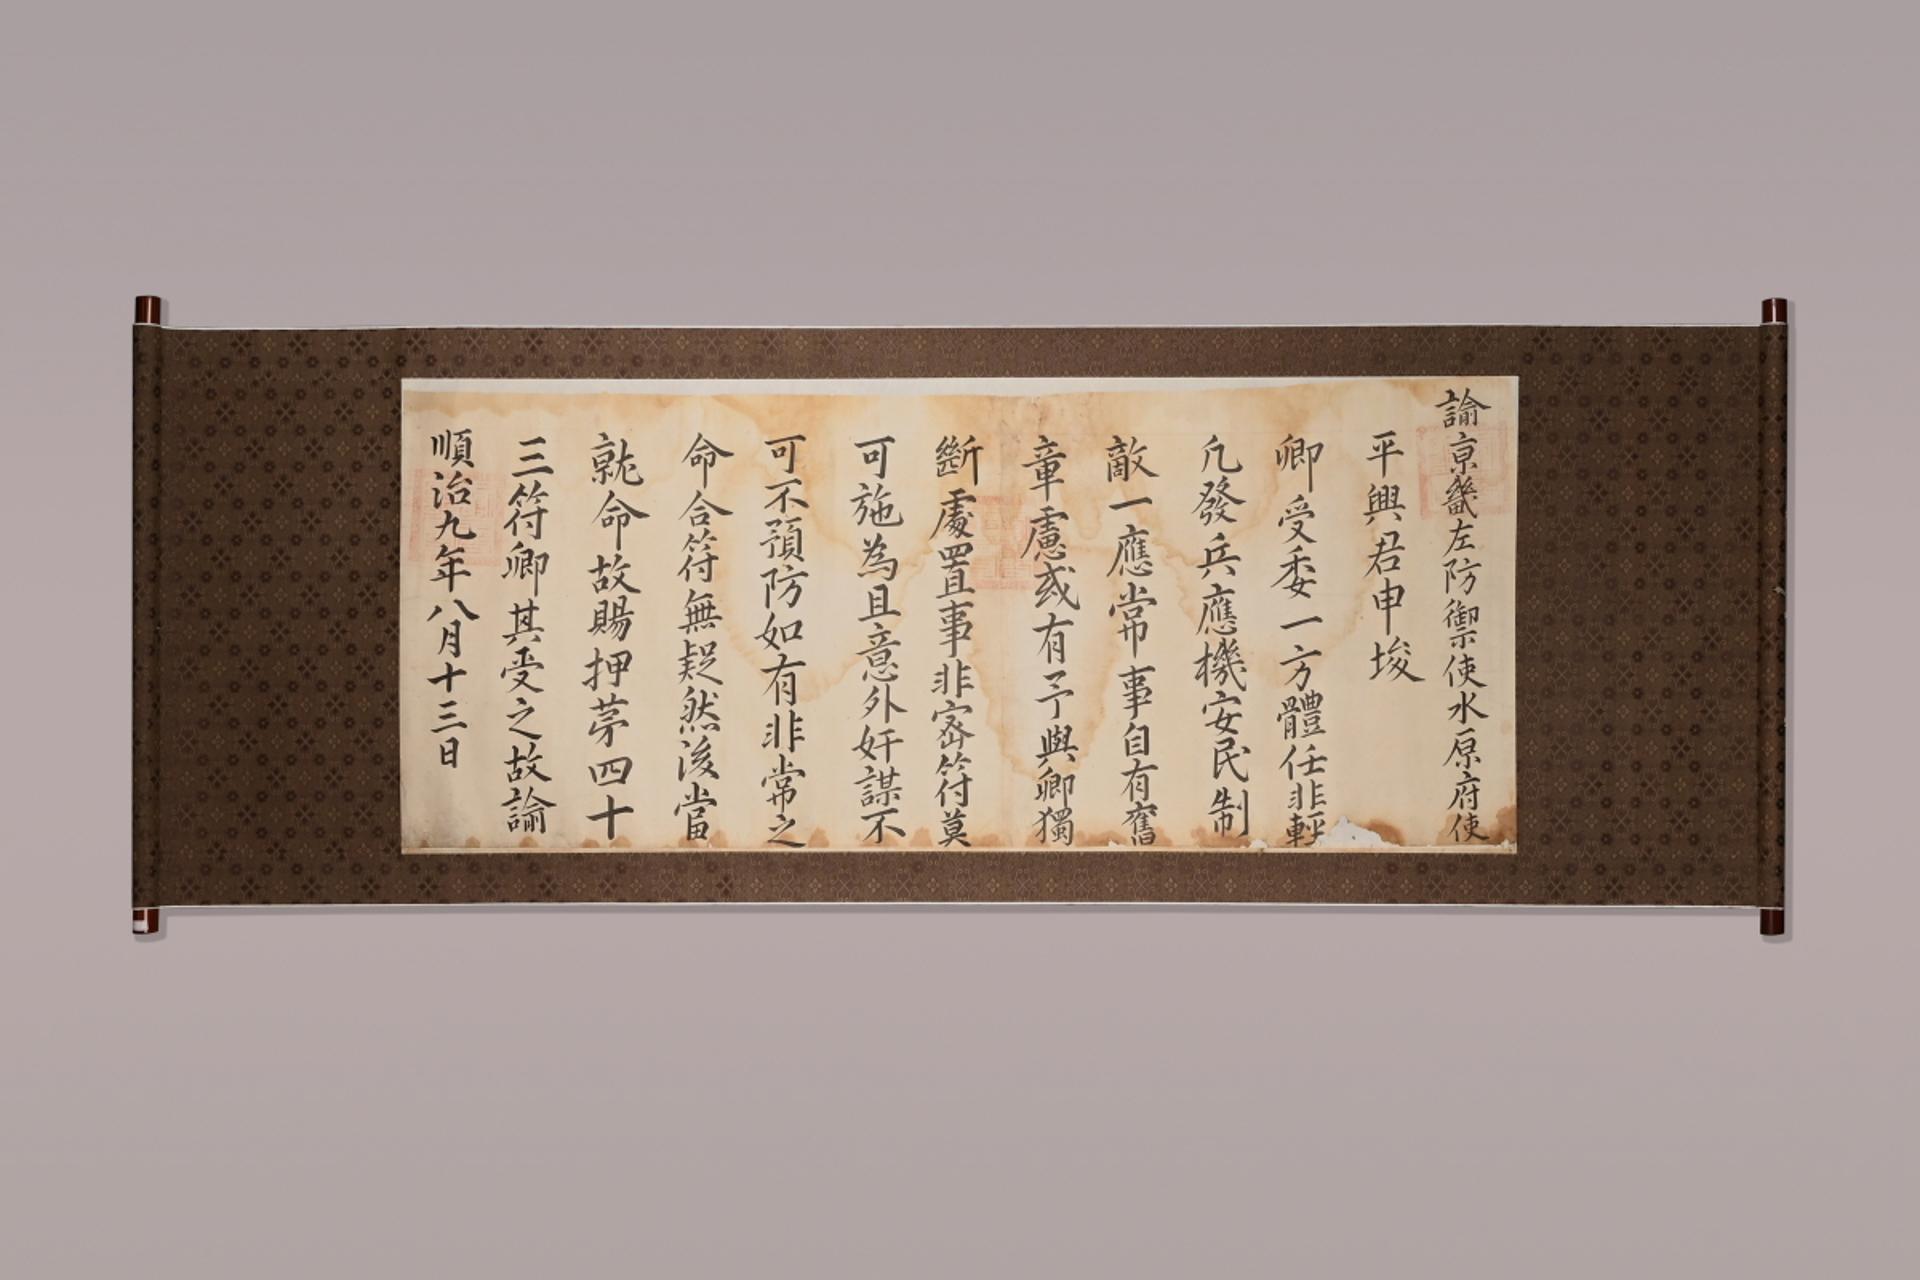 諭京畿左防禦使水原府使
平興君申埈
卿受委一方體任非輕
凡發兵應機安民制
敵一應常事自有舊
章慮或有予與卿獨
斷處置事非密符莫
可施為且意外奸謀不
可不預防如有非常之
命合符無疑然後當
就命故賜押苐四十
三符卿其受之故諭
順治九年八月十三日